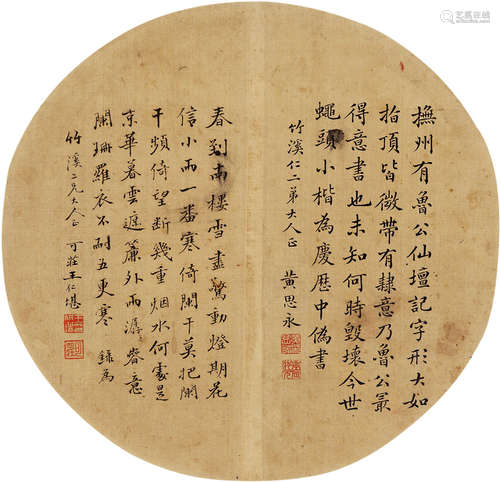 撫州有魯公仙壇記字形大如
指頂皆微帶有隷意乃魯公㝡
得意書也未知何時毀壞今世
蠅頭小楷為慶厯中偽書
竹溪仁二弟大人正 黃思永
春到南樓雪盡驚動燈期花
信小雨一番寒倚闌干莫把闌
干頻倚望斷幾重烟水何處是
京華暮雲遮簾外雨潺 春意
闌珊羅衣不耐五更寒 錄為
竹溪二兄大人正 可莊王仁堪